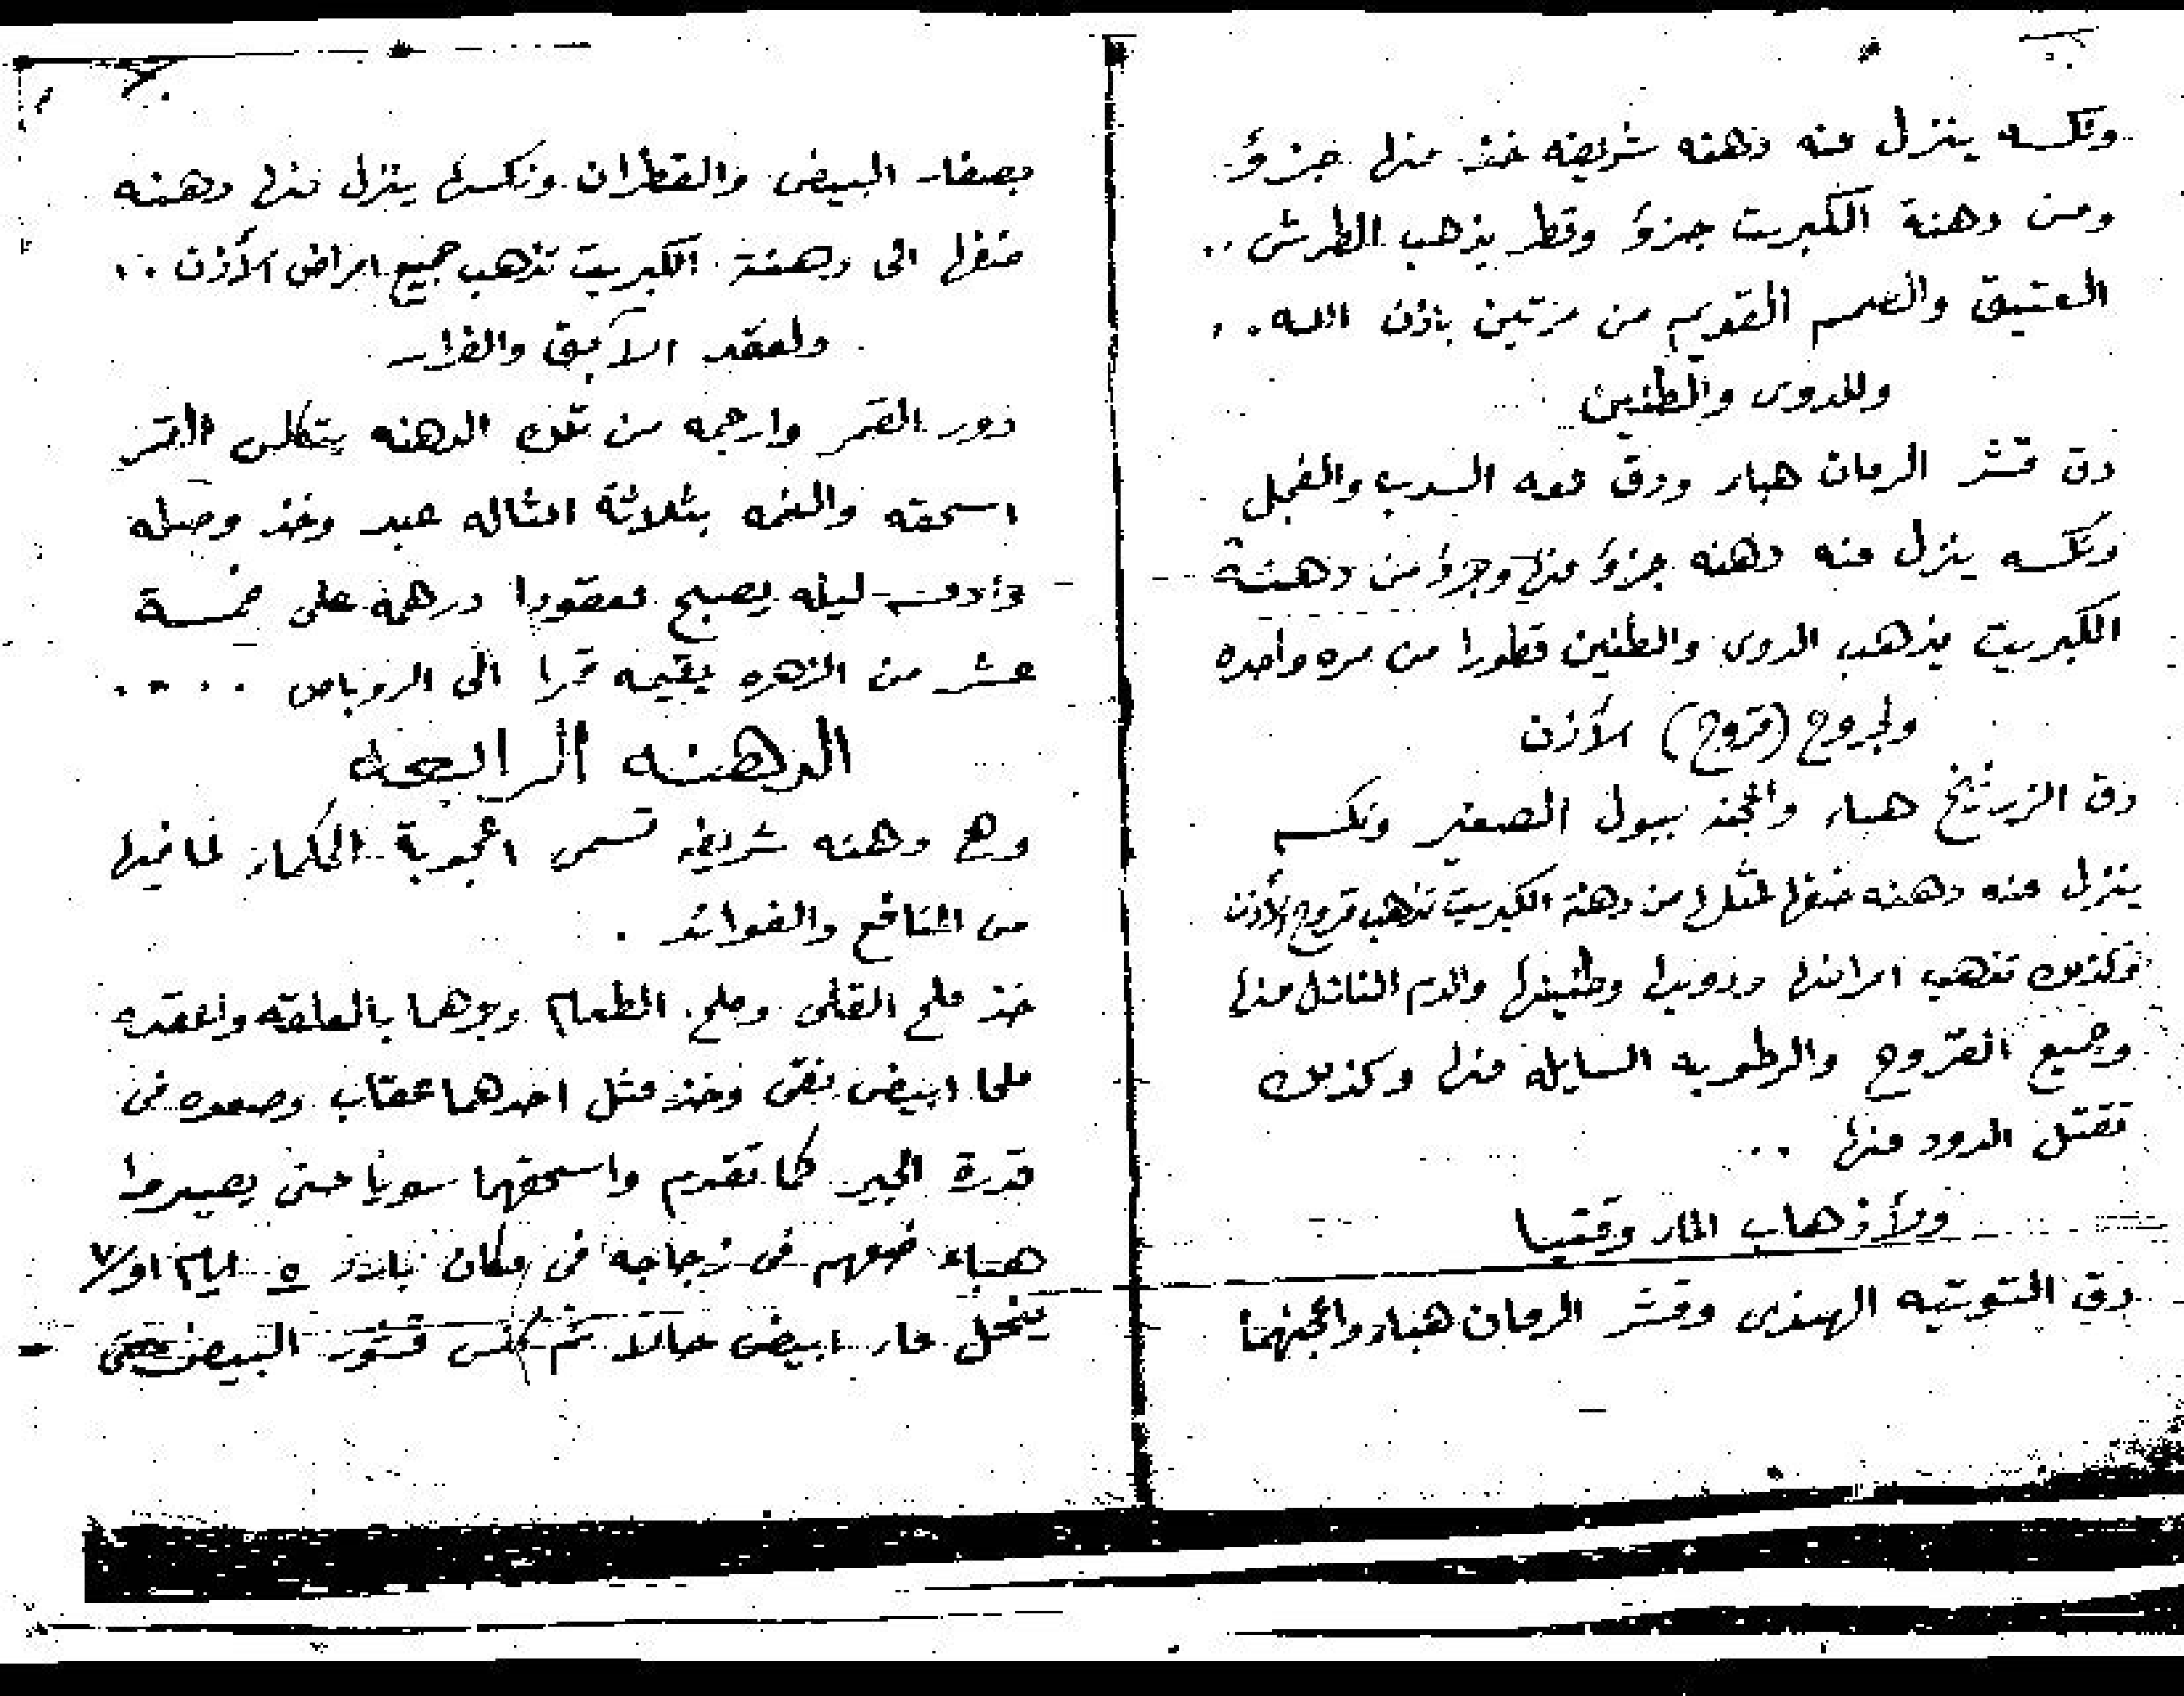 ونكسه ينزل منه دهنه شريفه خذ منها جزؤ
ومن دهنة الكبريت جزؤ وقطر يذهب الطرش ..
العتيق والصمم القديم من مرتين باذن الله ..
وللدوى والطنين
دق قشر الرمان هباء ودق معه السدب والفجل
ونكسه ينزل منه دهنه جزؤ منها وجزؤ من دهنة
الكبريت يذهب الدوى والطنين قطورا من مره واحده
ولجروح (قروح) الأذن
دق الزرنيخ هباء واعجنه ببول الصغير ونكسه
ينزل منه دهنه ضفها لمثلها من دهنة الكبريت تذهب قروح الأذن
وكذلك تذهب امراضها ودويها وطنينها والدم النازل منها
وجميع القروح والرطوبه السايله منها وكذلك
تقتل الدود منها ..
ولأذهاب الماء وقتيا
دق التوتيه الهندى وقشر الرمان هباء واعجنهما
بصفار البيض والقطران ونكسها ينزل منها دهنه
ضفها الى دهنة الكبريت تذهب جميع امراض الأذن ..
ولعقد الآبق والفرار
دور القمر وارجمه من تلك الدهنه يتكلس القمر
اسحقه والغمه بثلاثة امثاله عبد وخذ وصله
وأدمسه ليله يصبح معقودا درهمه على خمسة
عشر من الزهره يقيمه قمرا الى الروباص ....
الدهنه الرابعه
وهى دهنه شريفه تسمى اعجوبة الحكماء لما فيها
من المنافع والفوائد .
خذ ملح القلى وملح الطعام وبوهما بالعلقه واعقده
ملحا ابيض نقى وخذ مثل احدهما عقاب وصعده فى
قدرة الجير كما تقدم واسحقهما سويا حتى يصيروا
هباء ضعهم فى زجاجه فى مكان بارد ٥ ايام او ٧
ينحل ماء ابيض حالا ثم كلس قشور البيض حتى